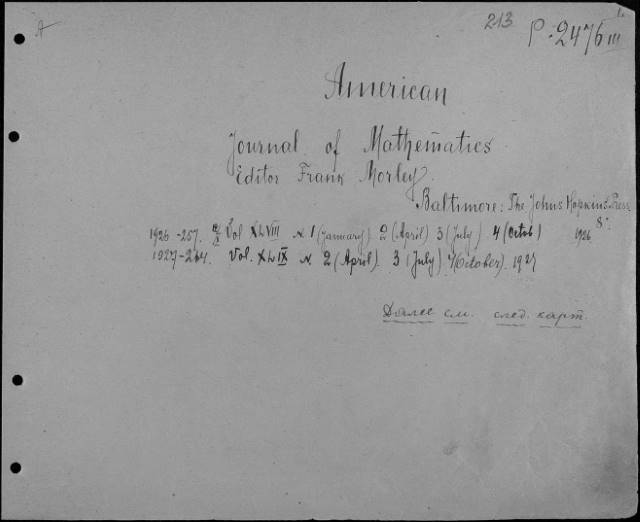 A
213 P-2476 III
American
Journal of Mathematics
Editor Frank Morley.
Baltimore: The Johns Hopkins Press
1926 8°.
1926-257. Vol XLVIII N 1 (january) 2 (April) 3 (July) 4 (Octob)
1927-204. Vol. XLIX N 2 (April) 3 (July) 4 (October). 1927
Далее см. след. карт.